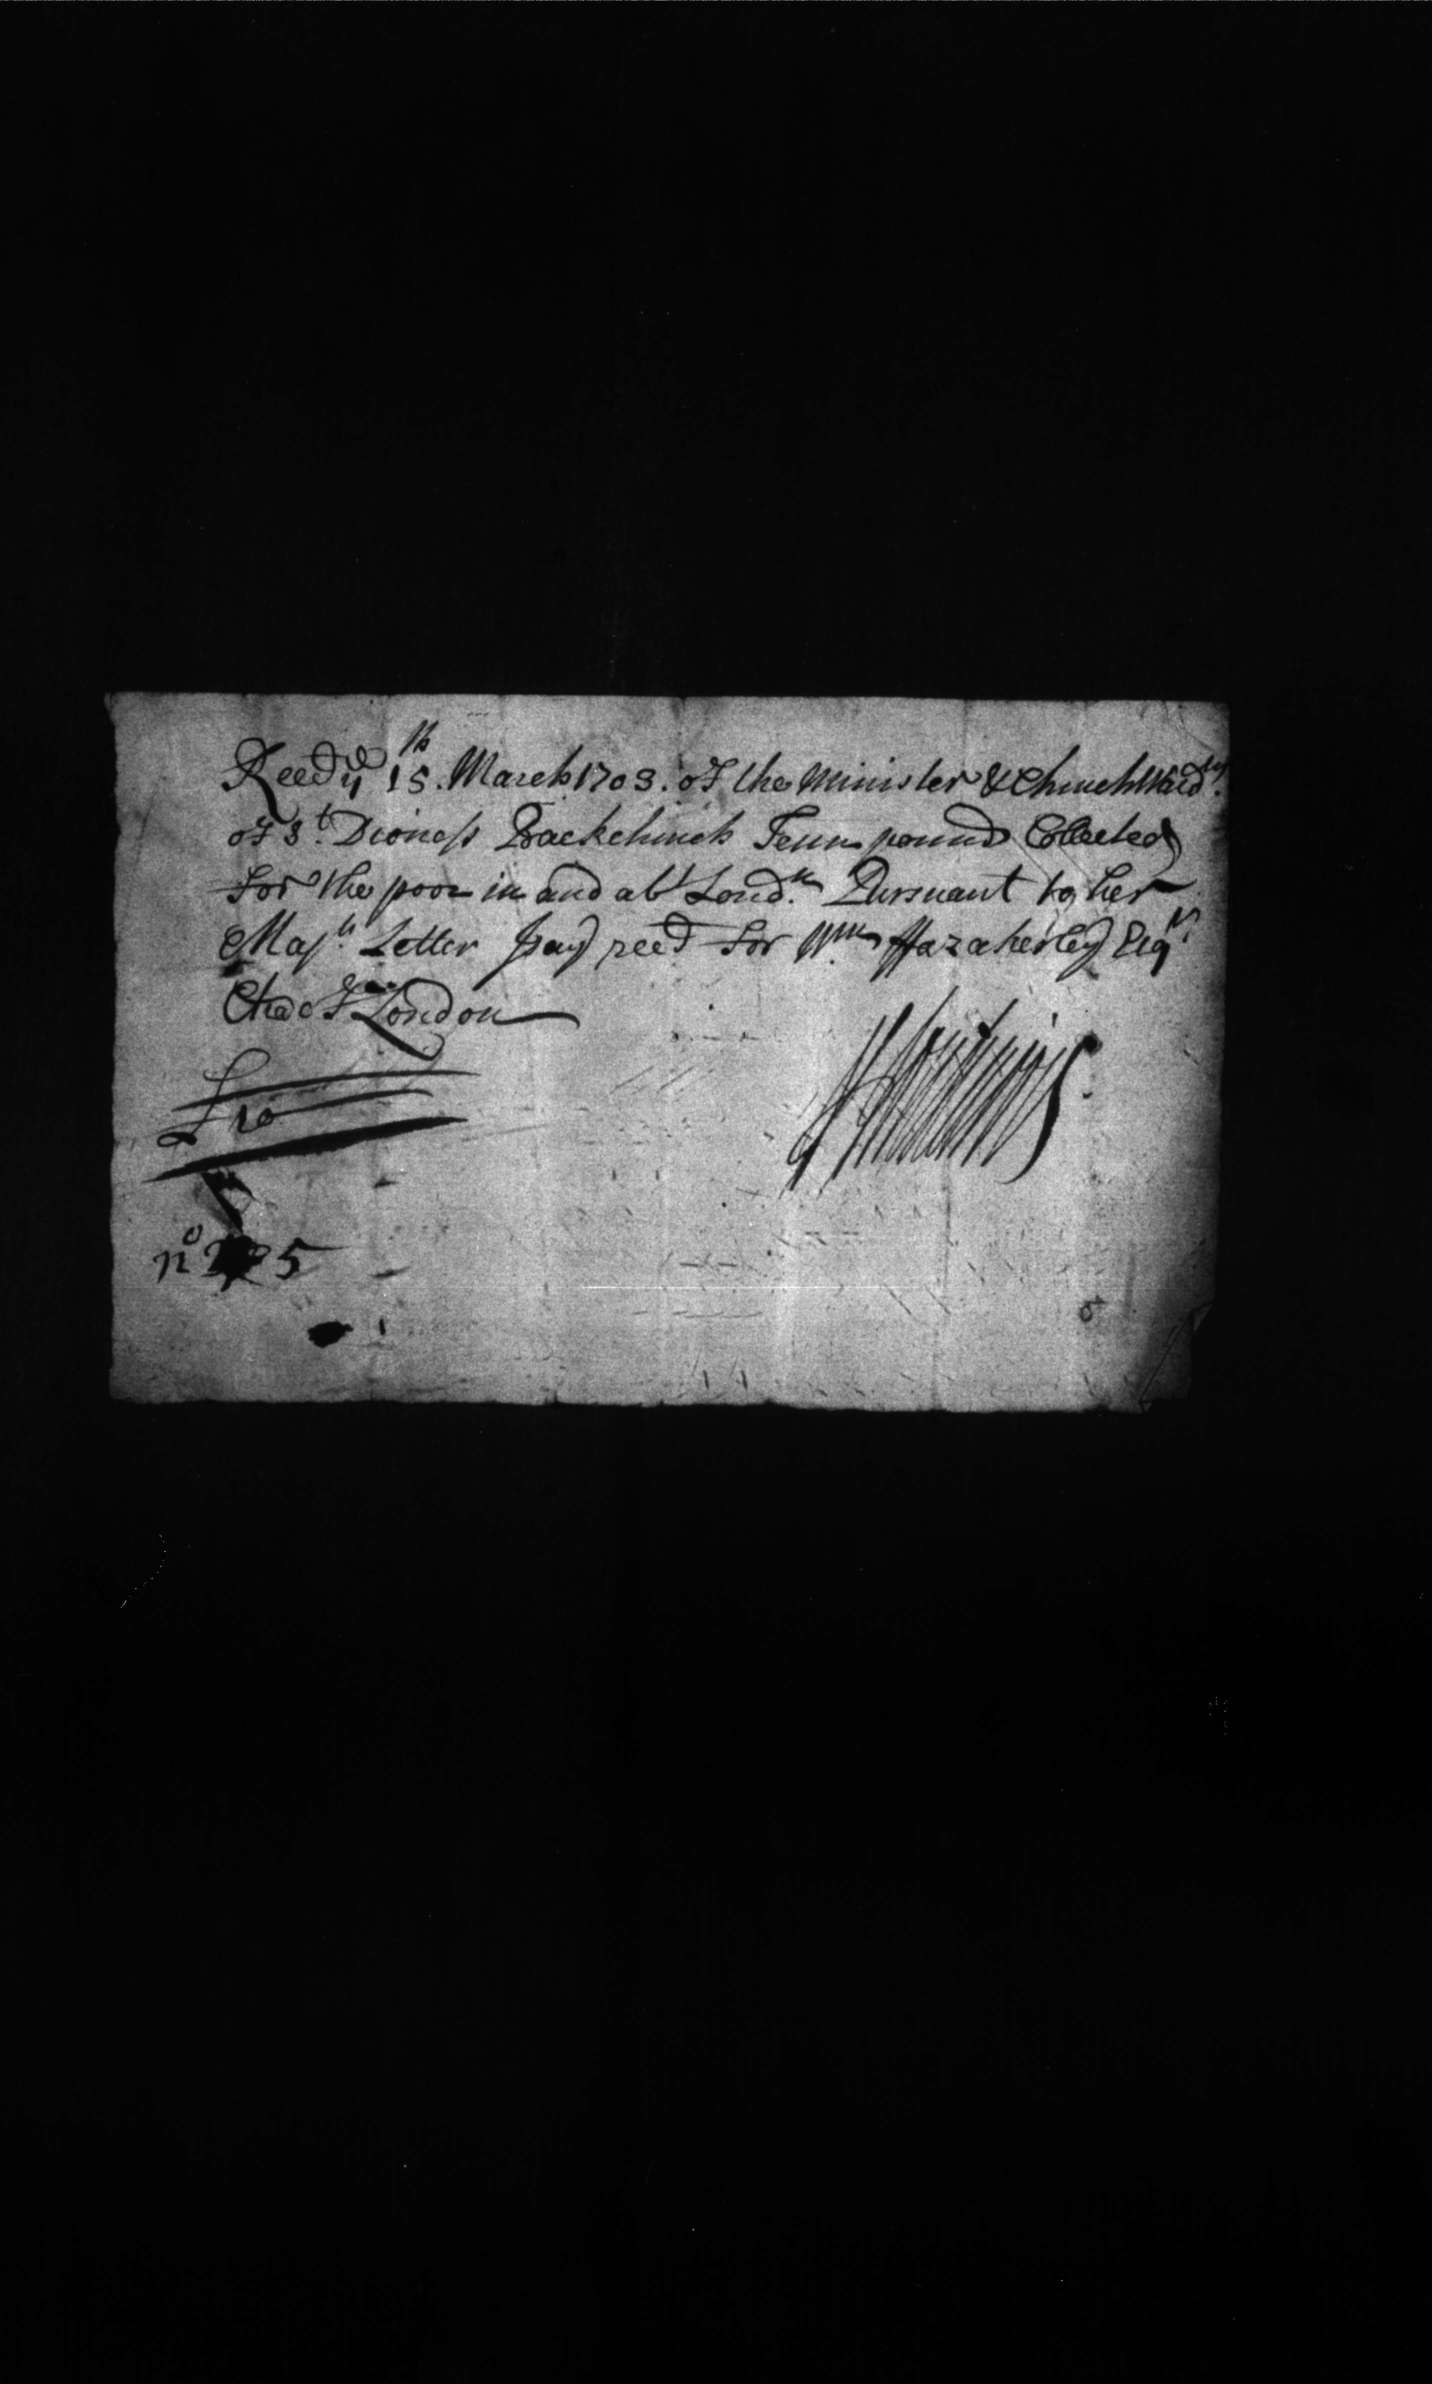 Recd ye 15th. March 1703. of the Minister & Churchwardns.
of St. Dioness Backchurch Tenn pound Collected
for the poor in and abt Londn. Pursuant to her
Majts. Letter I say recd for Wm. ffazakerley Esqr.
Cha of London
£10
no 5